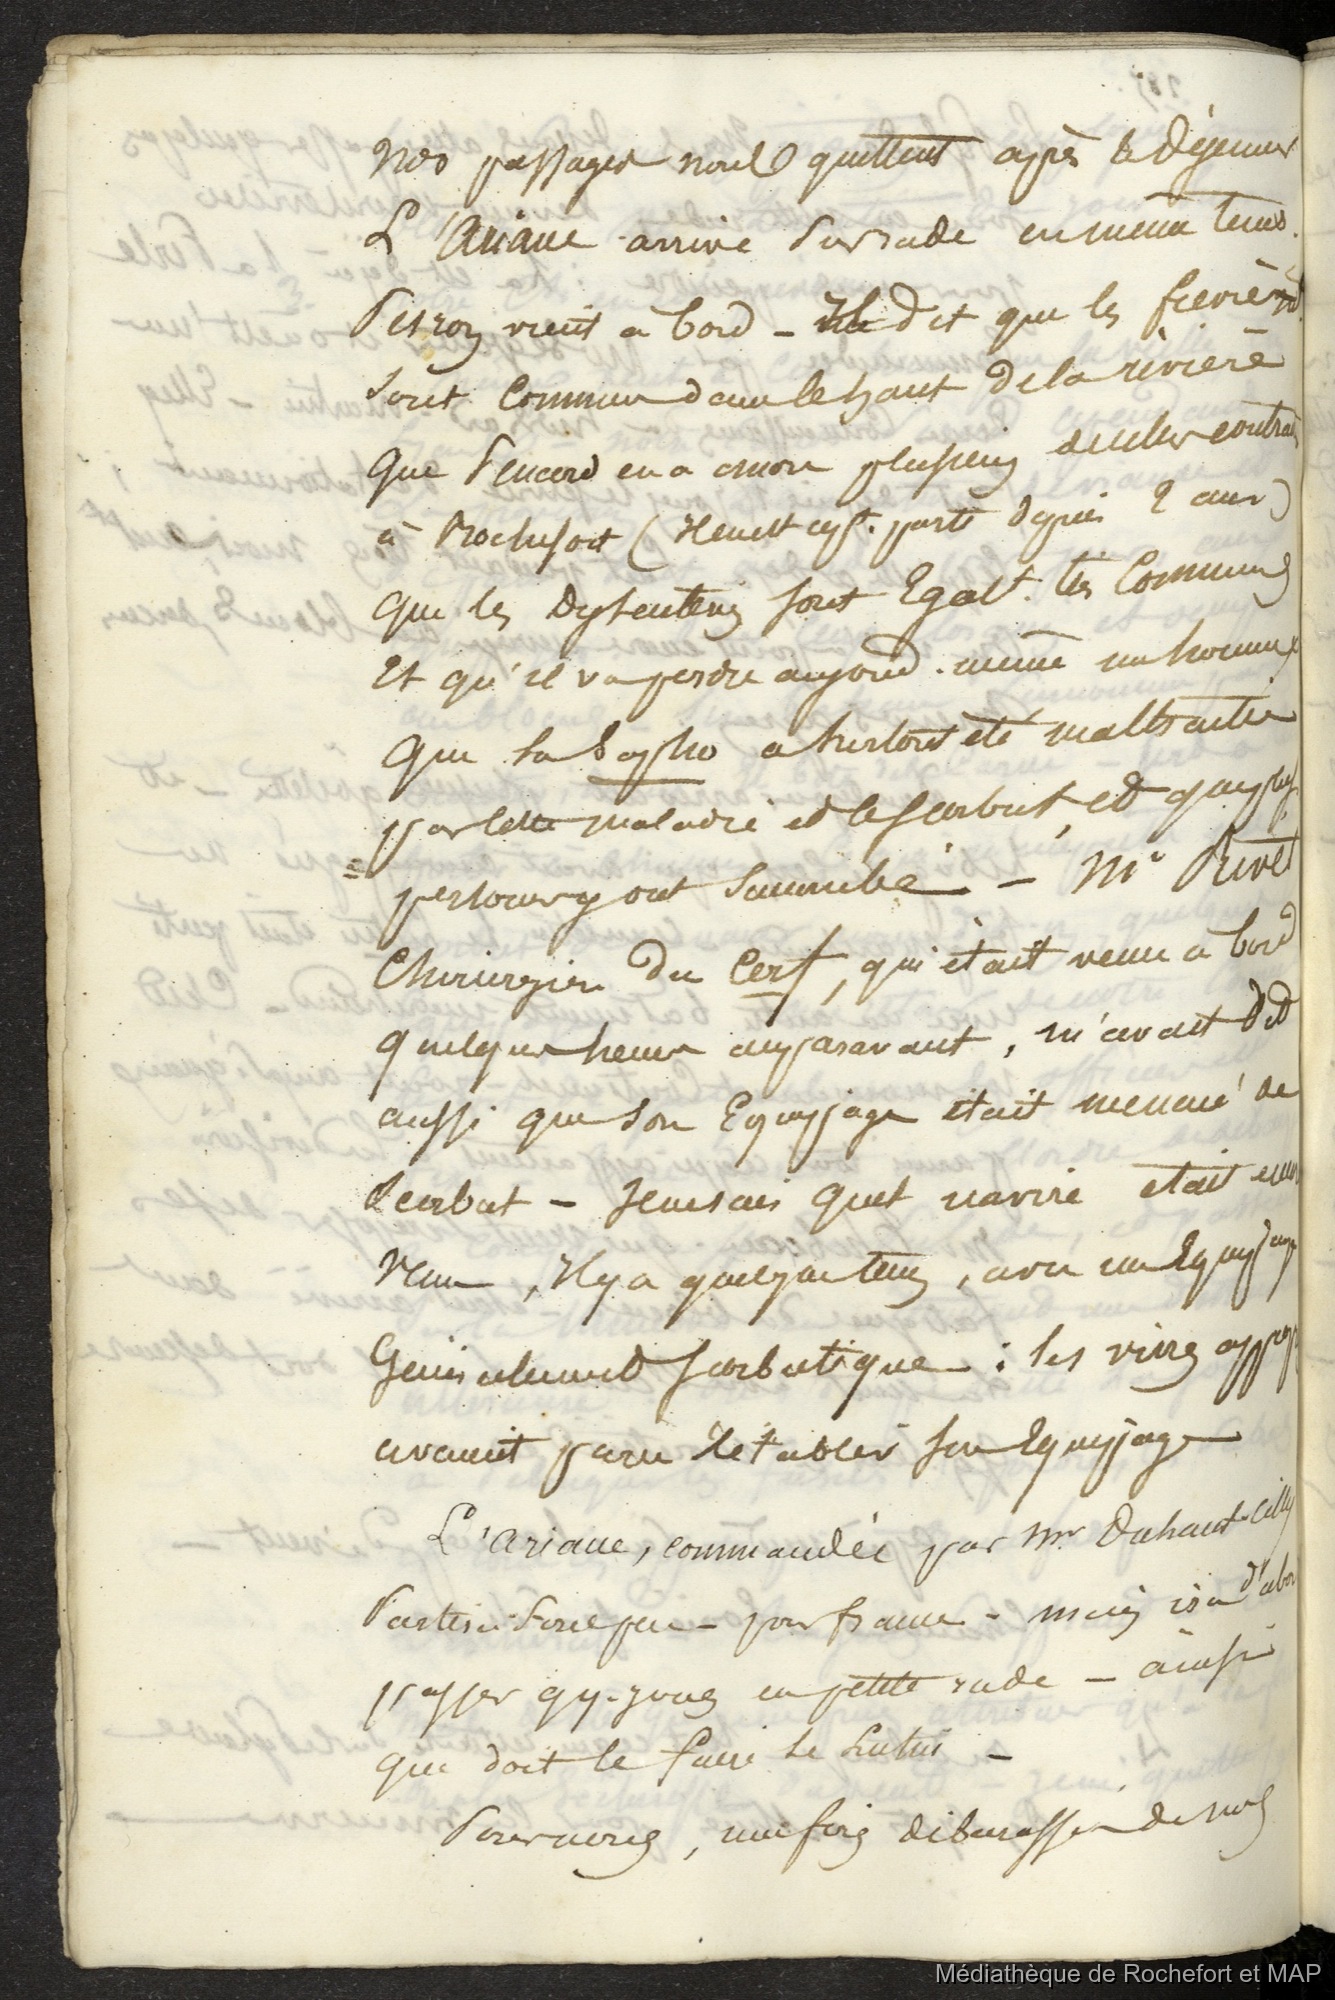 Nos passagers nous quittent après le déjeuner
L'Ariane arrive sur rade en même tems.
vient à bord - dit que les fièvres
sont communes dans le haut de la rivière
que en a encore plusieurs
à Rochefort ( parti depuis 2 ans)
que les dyssenteries sont Egalt. très Communes
Et qu'il va perdre aujourd. même un homme
que la Sapho a surtout été maltraitée
par cette maladie et le scorbut, et que plus.
personnes y ont succombé. - Mr Rivet
Chirurgien du Cerf, qui était venu à bord
quelques heures auparavant, m'avait dit
aussi que son Equipage était menacé de
scorbut - Je ne sais quel navire était
venu, il y a quelque tems, avec un Equipage
Généralement scorbutique : les vivres
avaient paru rétablir son Equipage
L'Ariane, commandée par Mr Duhaut-cilly
Partira sous peu - pour france - mais ira d'abord
passer qq. jours en petite rade - ainsi
que doit le faire le
Pour nous, une fois débarassés de nos
Médiathèque de Rochefort et MAP